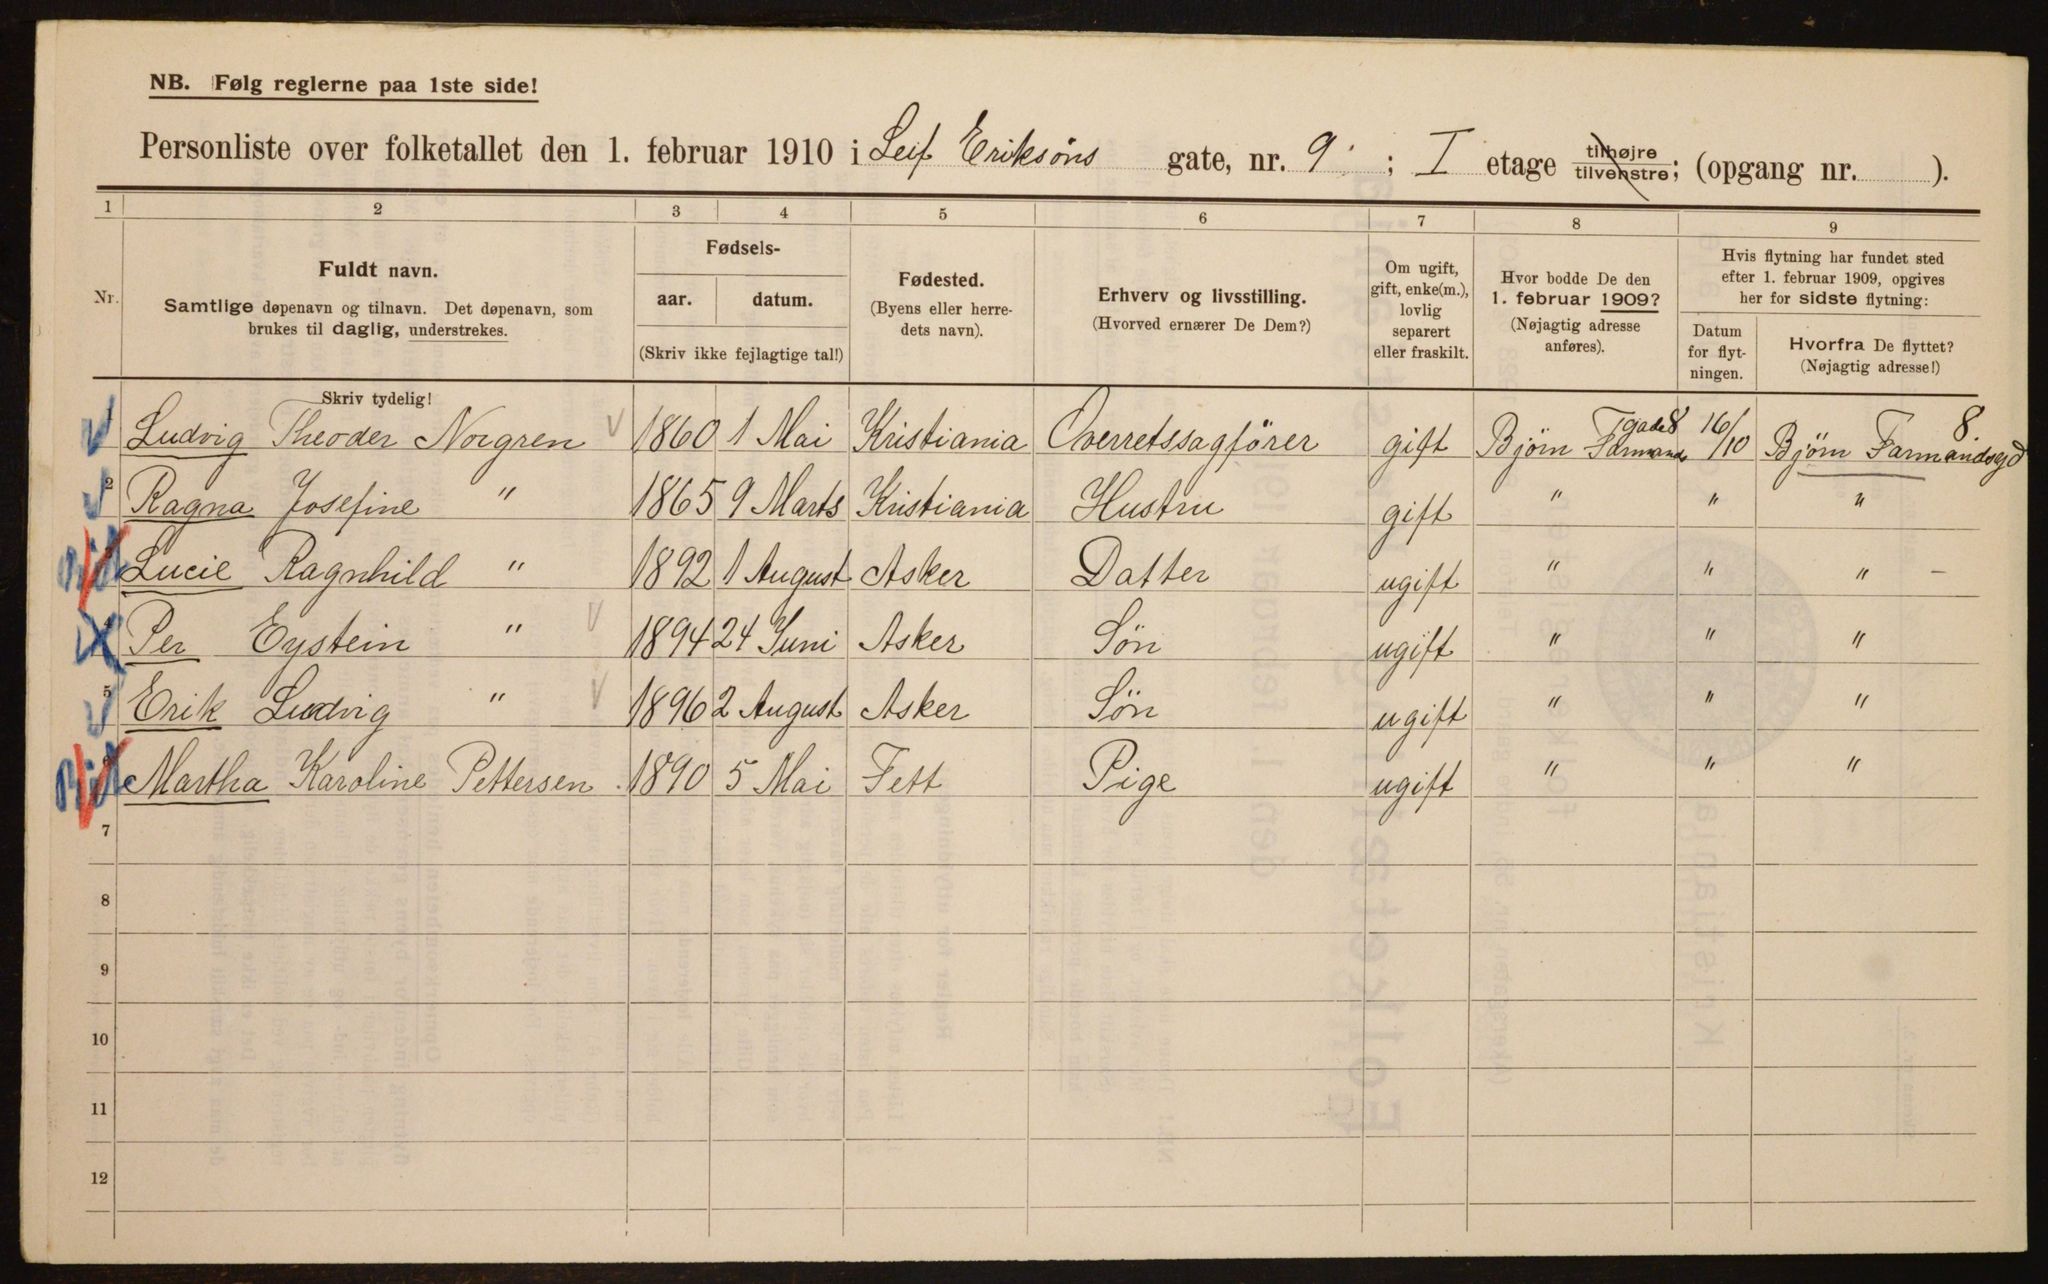 NB. Følg reglerne paa 1ste side!
Personliste over folketallet den 1. februar 1910 i Leif Eriksöns gate, nr. 9 ; I etage tilhøjre tilvenstre; (opgang nr. ).
1 2 3 4 5 6 7 8 9
Nr.
Fuldt navn.
Samtlige døpenavn og tilnavn. Det døpenavn, som
brukes til daglig, understrekes.
Fødsels-
aar. datum.
(Skriv ikke fejlagtige tal!)
Fødested.
(Byens eller herre-
dets navn).
Erhverv og livsstilling.
(Hvorved ernærer De Dem?)
Om ugift,
gift, enke(m.),
lovlig
separert
eller fraskilt.
Hvor bodde De den
1. februar 1909?
(Nøjagtig adresse
anføres).
Hvis flytning har fundet sted
efter 1. februar 1909, opgives
her for sidste flytning:
Datum
for flyt-
ningen.
Hvorfra De flyttet?
(Nøjagtig adresse!)
Skriv tydelig!
1 Ludvig Theoder Norgren 1860 1 Mai Kristiania Overretssagförer gift Björn Farmands gade 8 16/10 Björn Farmandsgd 8.
2 Ragna Josefine " 1865 9 Marts Kristiania Hustru gift " " "
3 Lucie Ragnhild " 1892 1 August Asker Datter ugift " " " –
4 Per Eystein " 1894 24 Juni Asker Sön ugift " " "
5 Erik Ludvig " 1896 2 August Asker Sön ugift " " "
6 Martha Karoline Pettersen. 1890 5 Mai Fett Pige ugift " " "
7
8
9
10
11
12